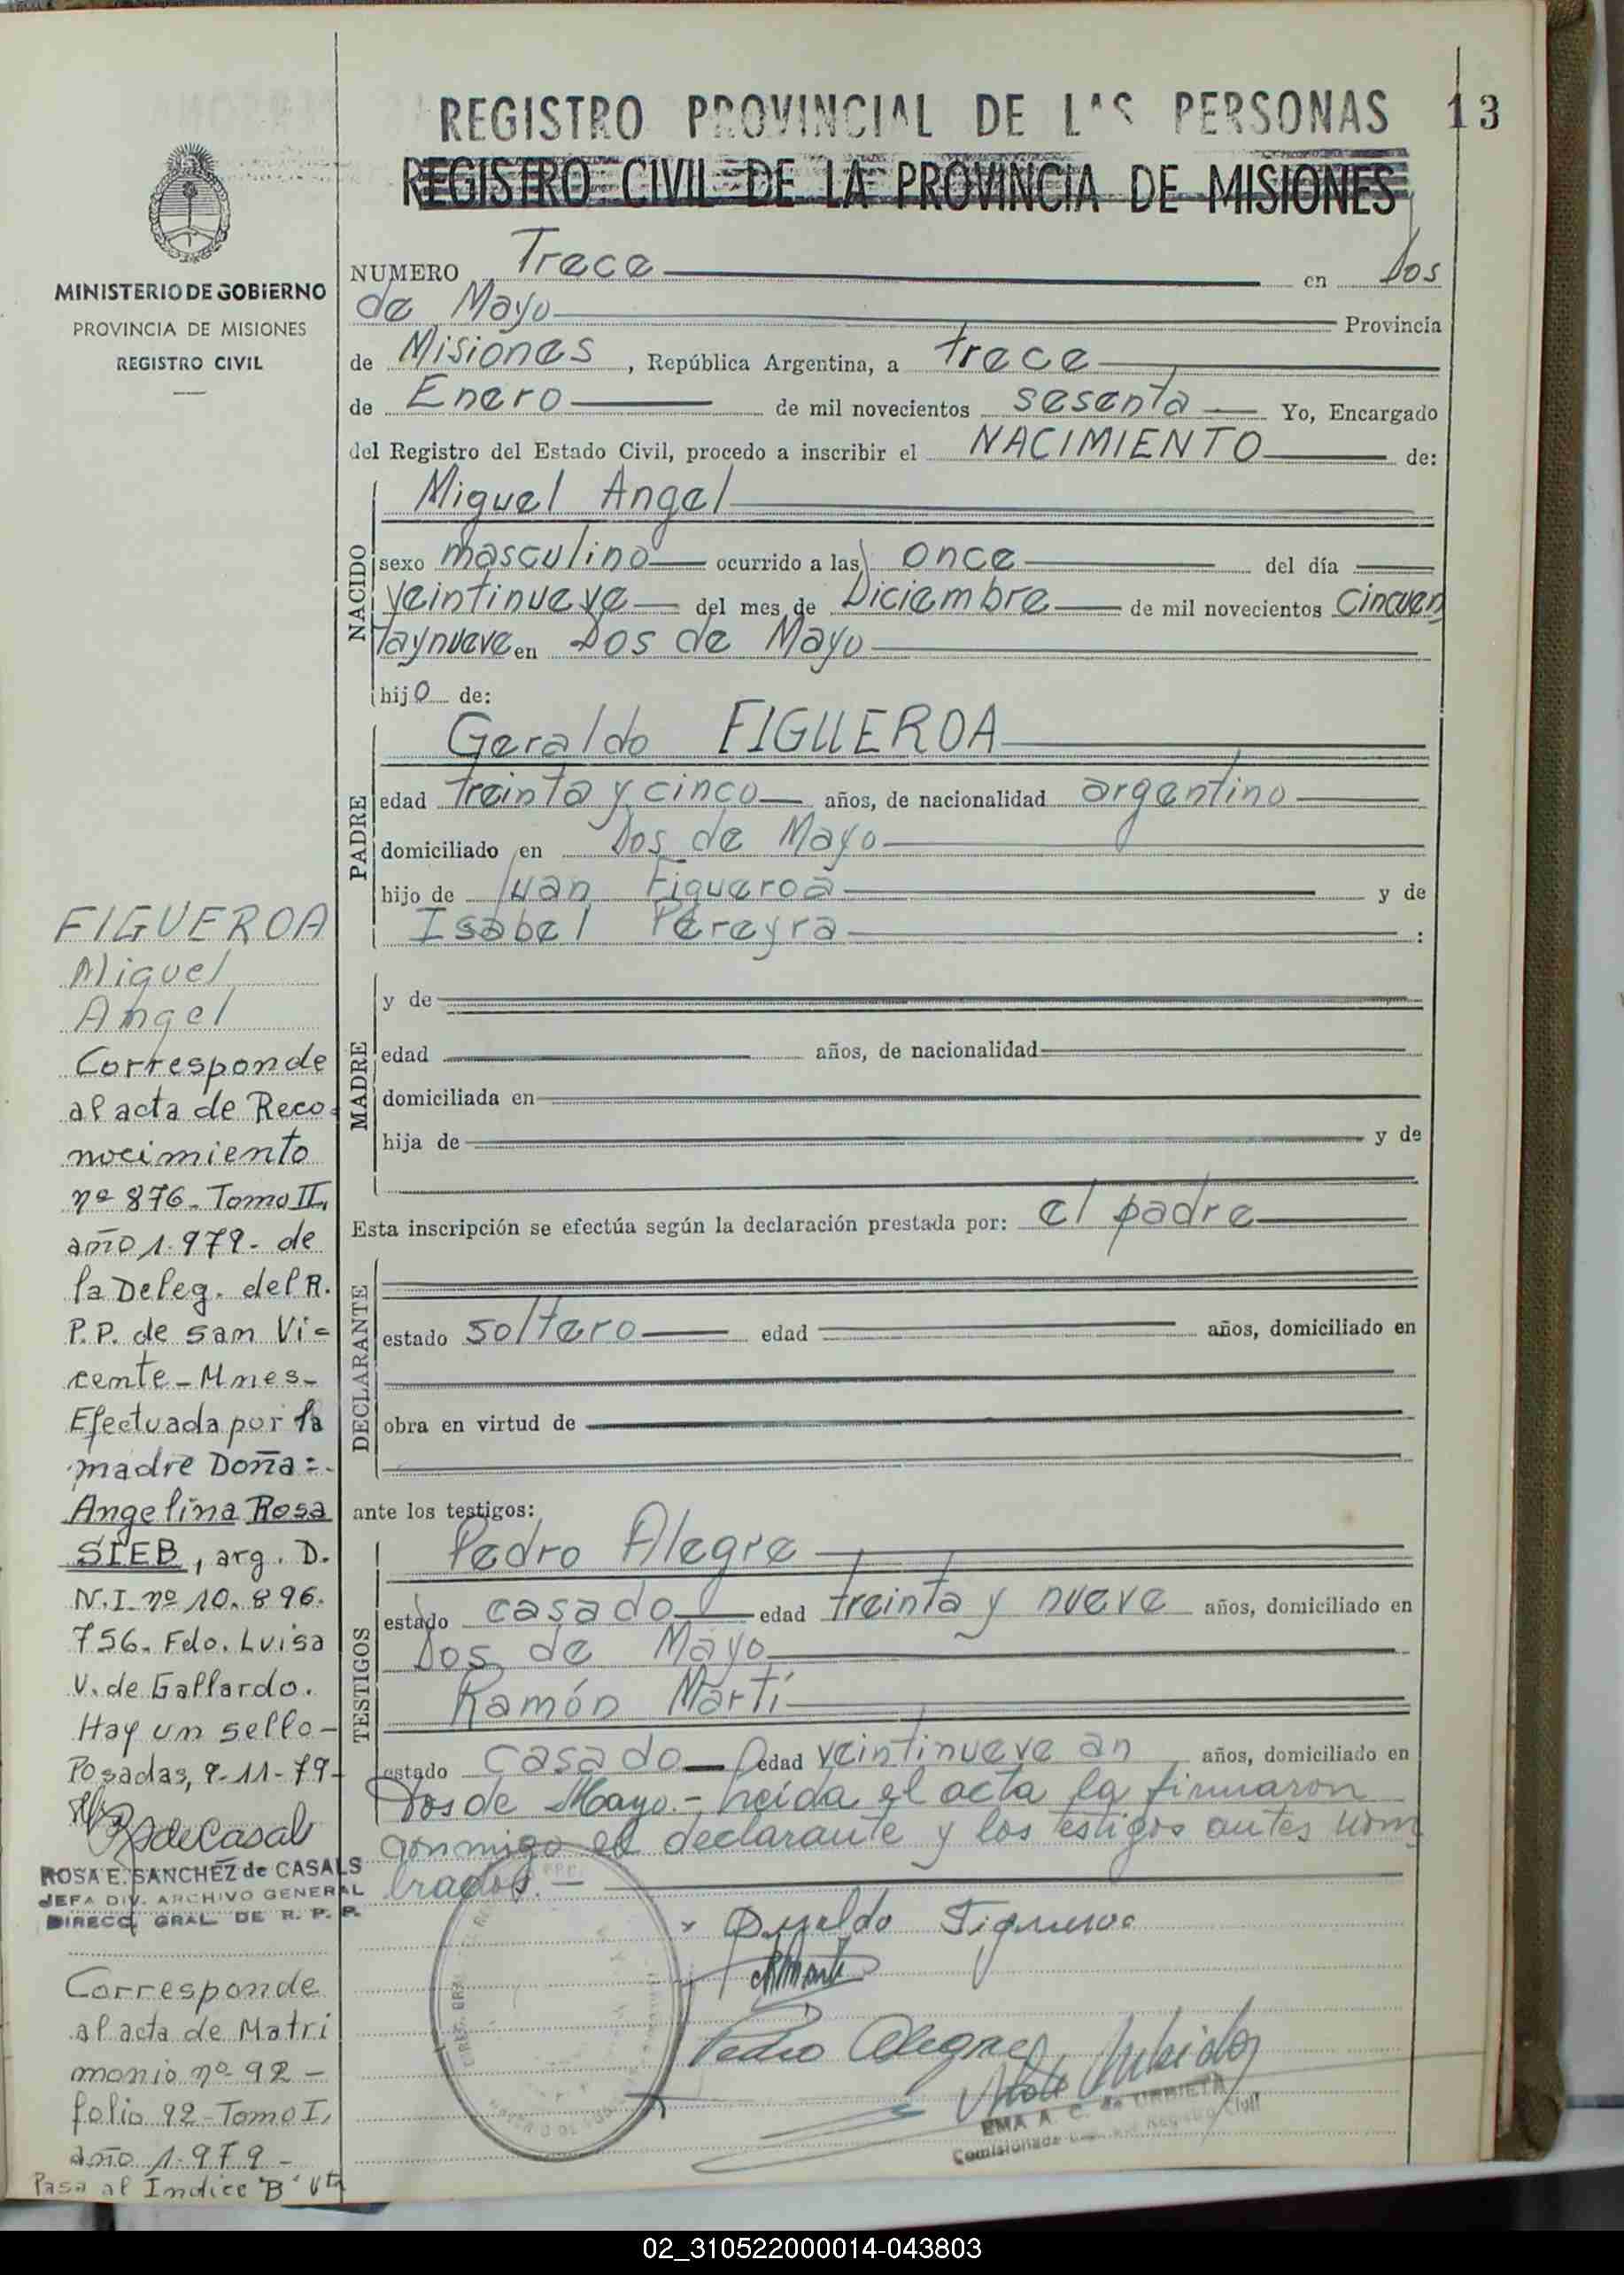 REGISTRO PROVINCIAL DE LAS PERSONAS 13
REGISTRO CIVIL DE LA PROVINCIA DE MISIONES
MINISTERIO DE GOBIERNO
PROVINCIA DE MISIONES
REGISTRO CIVIL
NUMERO Trece en Dos
de Mayo Provincia
de Misiones, República Argentina, a trece
de Enero de mil novecientos sesenta Yo, Encargado
del Registro del Estado Civil, procedo a inscribir el NACIMIENTO de:
NACIDO
Miguel Angel
sexo masculino ocurrido a las once del día
veintinueve del mes de Diciembre de mil novecientos cincuen
taynueve en Dos de Mayo
hijo de:
PADRE
Geraldo FIGUEROA
edad treinta y cinco años, de nacionalidad argentino
domiciliado en Dos de Mayo
hijo de Juan Figueroa y de
Isabel Pereyra :
MADRE
y de
edad años, de nacionalidad
domiciliada en
hija de y de
Esta inscripción se efectúa según la declaración prestada por: el padre
DECLARANTE
estado soltero edad años, domiciliado en
obra en virtud de
ante los testigos:
TESTIGOS
Pedro Alegre
estado casado edad treinta y nueve años, domiciliado en
Dos de Mayo
Ramón Martí
estado casado edad veintinueve an años, domiciliado en
Dos de Mayo.- Leída el acta la firmaron
conmigo el declarante y los testigos antes nom
brados.-
Figueroa
Pedro Alegre
EMA A. C. de URRIETA
Registro Civil
FIGUEROA
Miguel
Angel
Corresponde
al acta de Reco-
nocimiento
nº 876- Tomo II,
año 1.979- de
la Deleg. del R.
P.P. de San Vi=
cente- Mnes-
Efectuada por la
madre Doña:-
Angelina Rosa
SIEB, arg. D.
N.I. nº 10.896.
756- Fdo. Luisa
V. de Gallardo.
Hay un sello-
Posadas, 9-11-79-
RSdeCasals
ROSA E. SANCHEZ de CASALS
JEFA DIV. ARCHIVO GENERAL
DIRECC. GRAL. DE R. P. P.
Corresponde
al acta de Matri
monio nº 92-
folio 92- Tomo I,
año 1.979-
Pasa al Indice "B" Vta
02_310522000014-043803